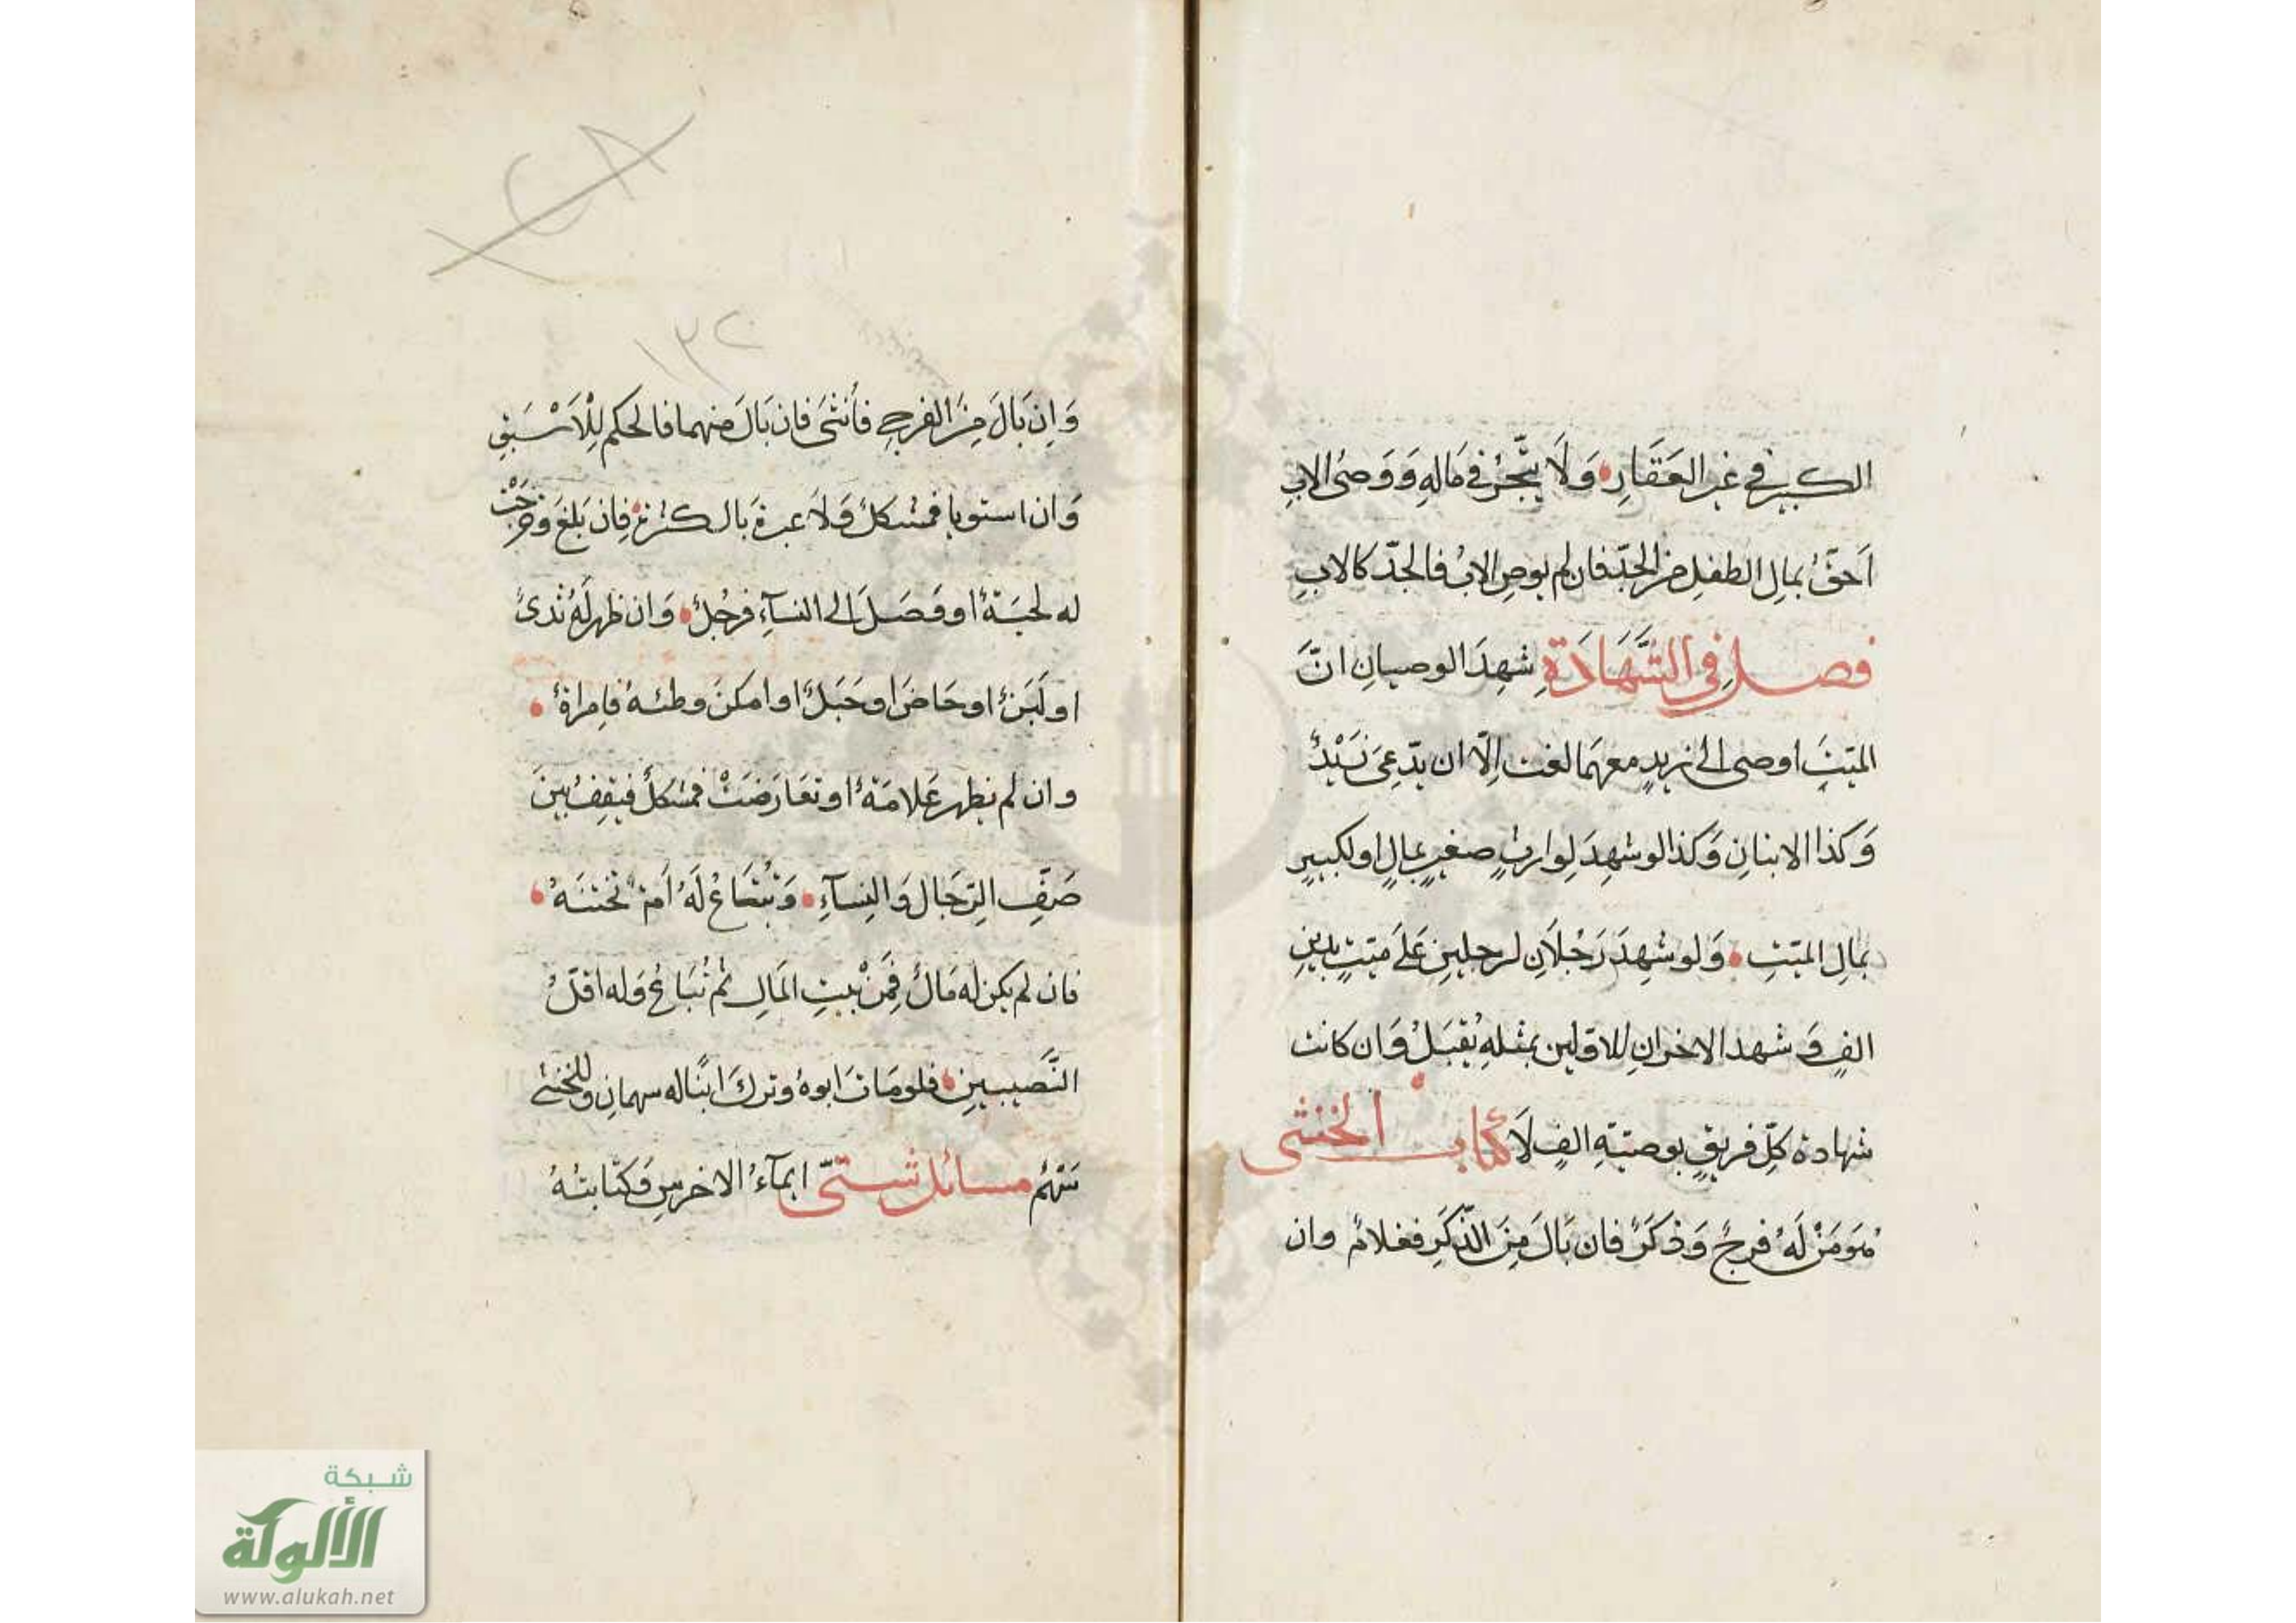 الكبير في غير العَقَارِ وَلَا يتّجرُ في مَالهِ وَوَصىُّ الابِ
اَحقُّ بمالِ الطفلِ من الجدّ فان لم يوصِ الابُ فالجدّ كالابِ
فصل في الشَّهَادَةِ شهِدَ الوصيانِ انَّ
الميّتَ اوصى الى زيدٍ معهمَا لغت اِلّا ان يدّعىَ زَيْدٌ
وَكذا الابنانِ وَكذا لو شهِدَ لِوارثٍ صغيرٍ بمالٍ او لكبيرٍ
بمالِ الميّتِ وَلو شهِدَ رَجُلَانِ لرجلينِ عَلَى ميّتٍ بدينِ
الفٍ وَشهد الاخرانِ للاوّلين بمثلهِ يُقبَلُ وَان كانت
شهادة كلِّ فريقٍ بوصيّةِ الفٍ لَا كتاب الخنثى
هُوَ مَنْ لَهُ فرجٌ وَذكَرٌ فان بَالَ مِنَ الذّكَرِ فغلامٌ وان
١٣٢
وَاِن بَالَ مِنَ الفرجِ فأنثىَ فان بَالَ منهما فالحكم لِلْاَسْبَقِ
وَان استويا فمشكلٌ وَلَا عبرةَ بالكثرةِ فان بَلغَ وَخرجَتْ
له لحيَةٌ او وَصَلَ الى النسآءِ فرجُلٌ وَان ظهر لَهُ ثدىٌ
او لَبَنٌ او حَاضَ او حَبَلٌ او امكنَ وطئهُ فامراةٌ
وان لم يظهر عَلامَةٌ او تعَارَضَتْ فمشكلٌ فيقِفُ بينَ
صَفِّ الرِّجَال وَالنِسآءِ وَتُبْتَاعُ لَهُ اَمَةٌ تختنهُ
فان لم يكن له مَالٌ فمِنْ بيتِ المَالِ ثم تُبَاعُ وَله اقلُّ
النَّصيبينِ فلو مَاتَ ابوهُ وَتركَ ابنًا له سهمانِ وَللخنثى
سَهْمٌ مسائل شتّى ايمآءُ الاخرسِ وَكتَابتُهُ
شبكة
الألوكة
www.alukah.net